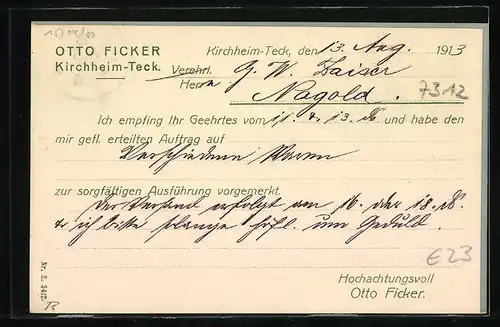 OTTO FICKER
Kirchheim-Teck.
Kirchheim-Teck, den 13. Aug. 1913
Verehrl. G. W. Zaiser
Herrn
Nagold.
7312
Ich empfing Ihr Geehrtes vom 11. & 13. ds. und habe den
mir gefl. erteilten Auftrag auf
Verschiedene Waren
zur sorgfältigen Ausführung vorgemerkt.
Der Versand erfolgt am 16. oder 18. ds.
& ich bitte solange höfl. um Geduld.
€23
Hochachtungsvoll
Otto Ficker.
Nr. 2. 5412.